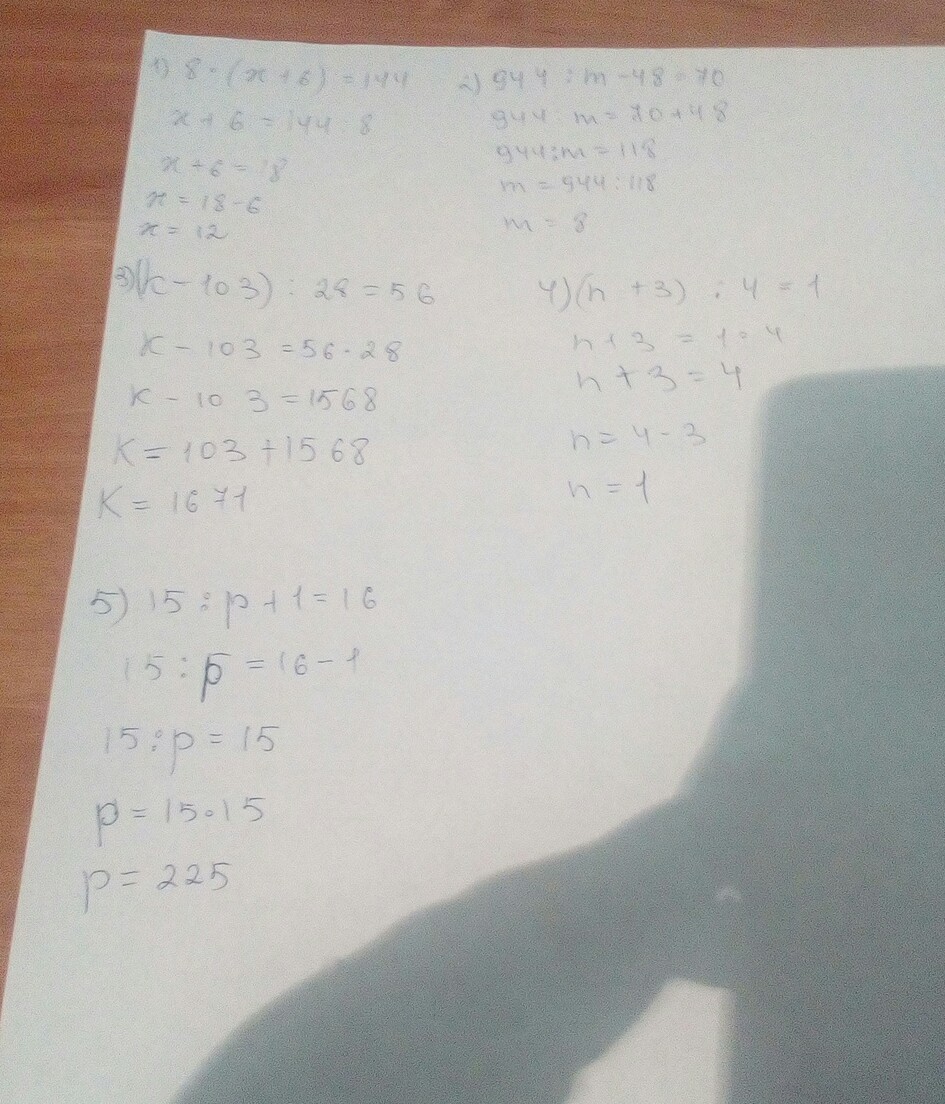 1) 8 · (x + 6) = 144
x + 6 = 144 : 8
x + 6 = 18
x = 18 - 6
x = 12
2) 944 : m - 48 = 70
944 : m = 70 + 48
944 : m = 118
m = 944 : 118
m = 8
3) (k - 103) : 28 = 56
k - 103 = 56 · 28
k - 103 = 1568
k = 103 + 1568
k = 1671
4) (n + 3) : 4 = 1
n + 3 = 1 · 4
n + 3 = 4
n = 4 - 3
n = 1
5) 15 : p + 1 = 16
15 : p = 16 - 1
15 : p = 15
p = 15 · 15
p = 225